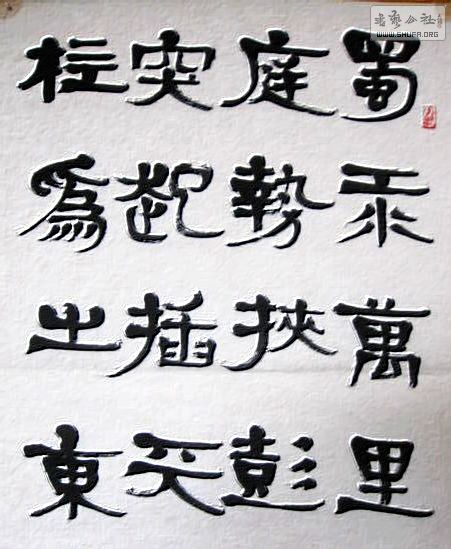 蜀江萬里
庭勢挾彭
突起插天
柱為之東
書藝公社
WWW.SHUFA.ORG